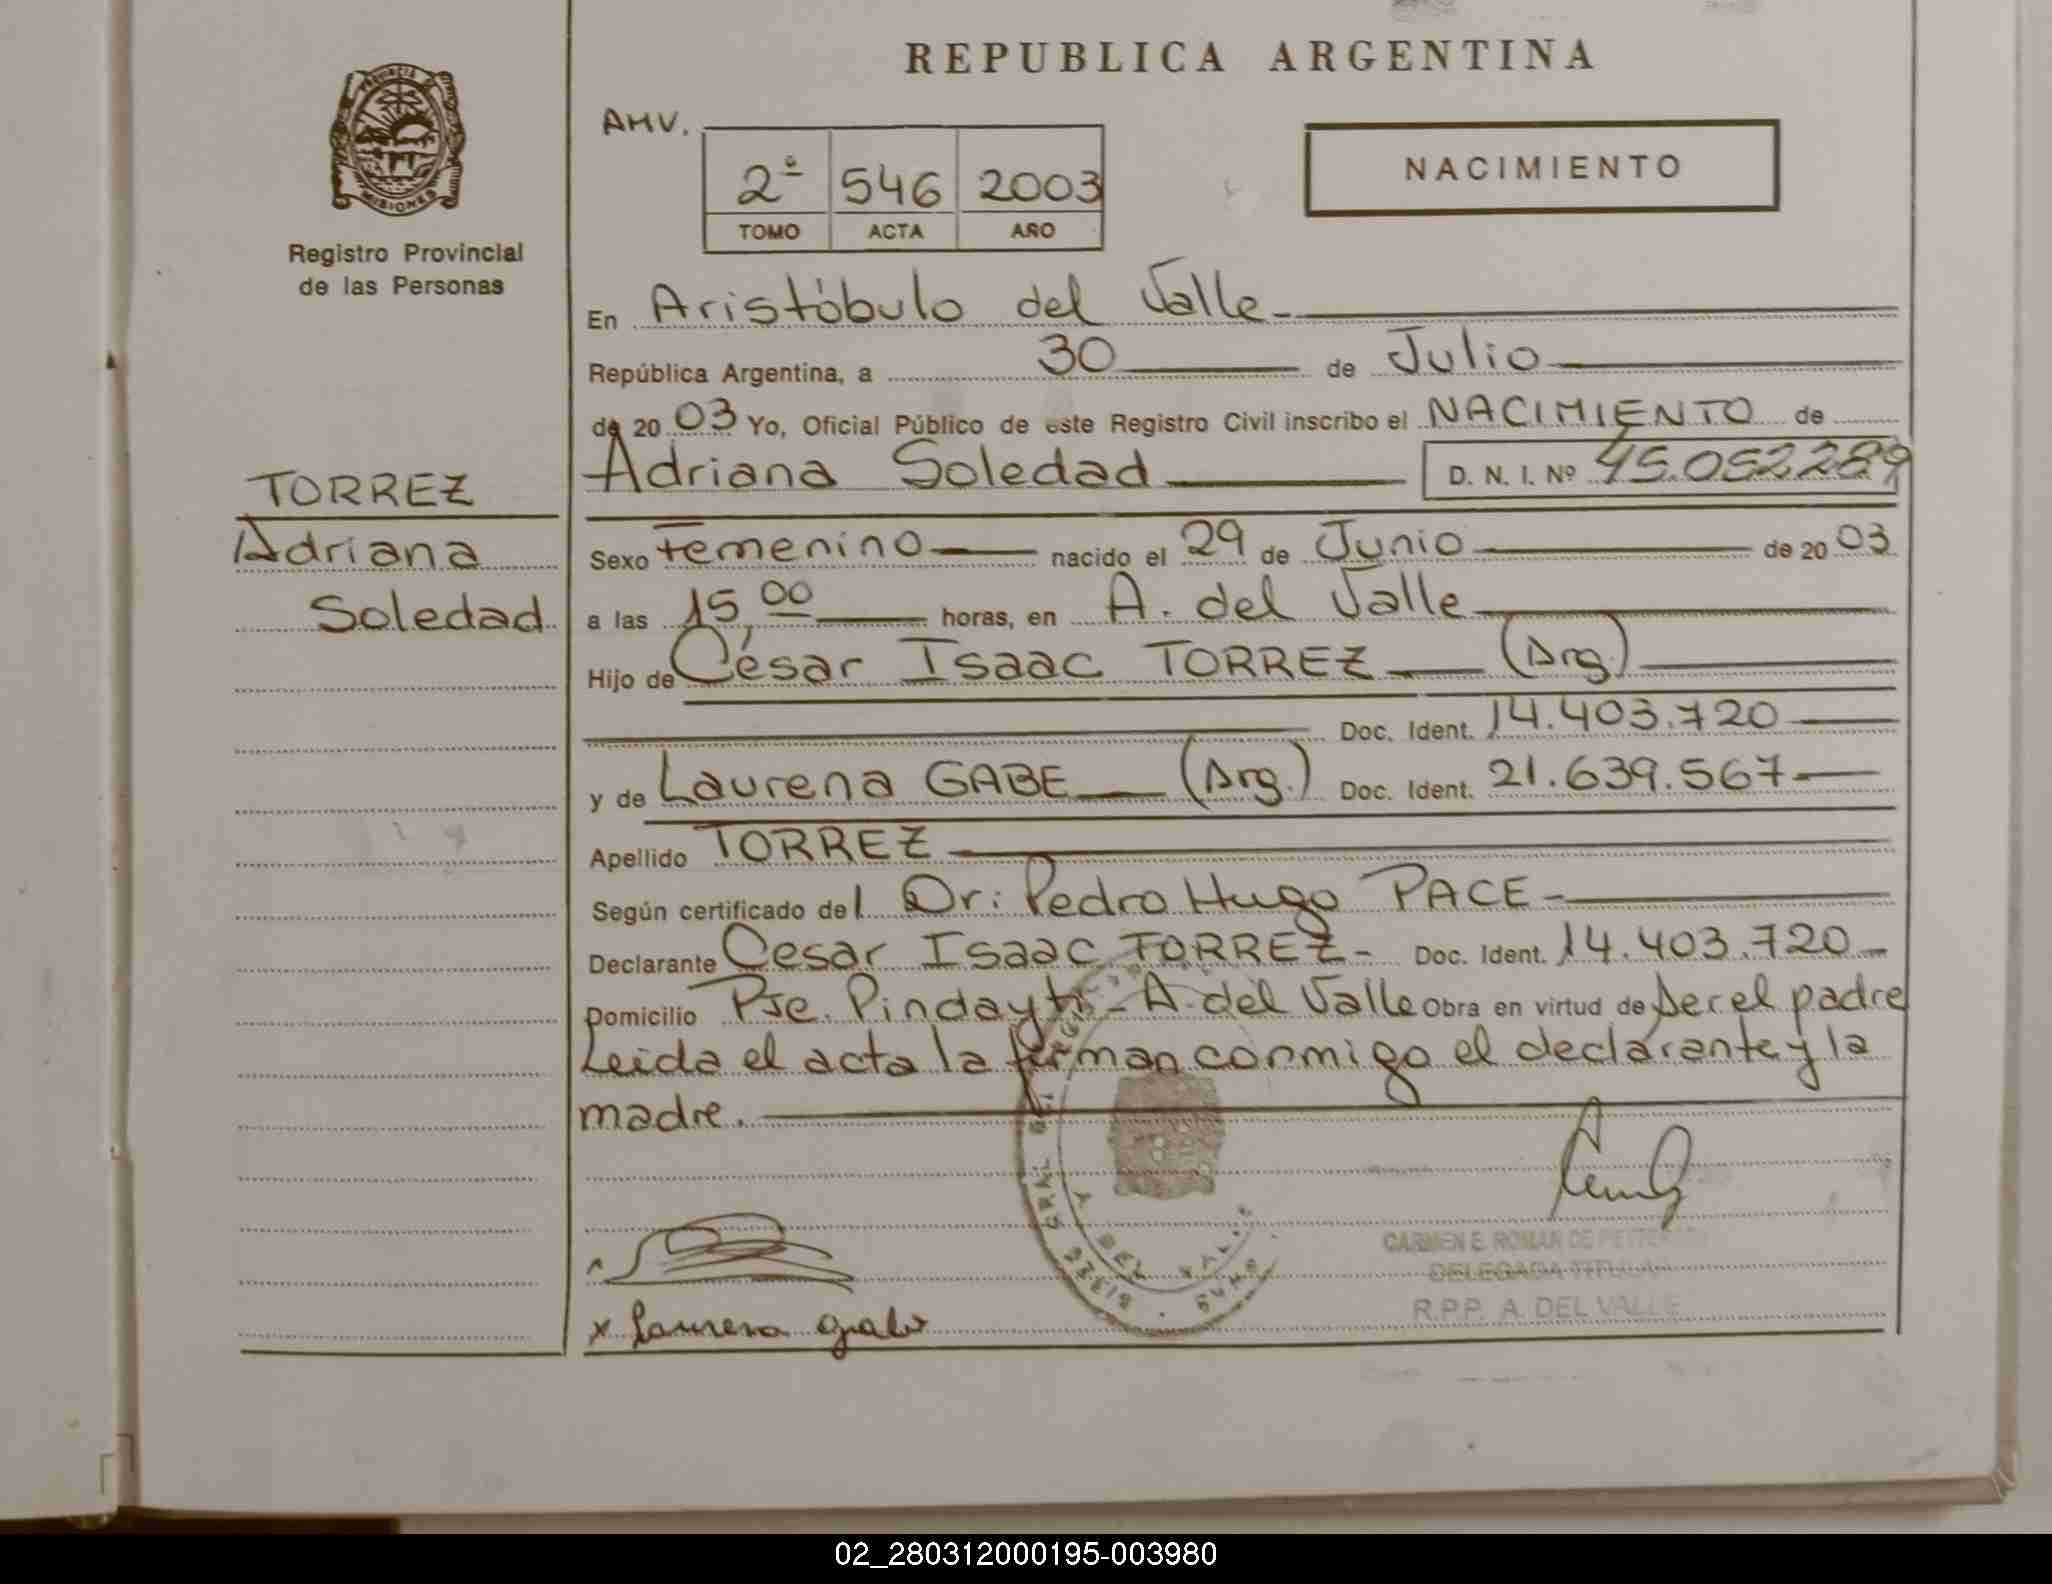 REPUBLICA ARGENTINA
PROVINCIA
MISIONES
Registro Provincial
de las Personas
AHV.
2º 546 2003
TOMO ACTA AÑO
NACIMIENTO
En Aristóbulo del Valle
República Argentina, a 30 de Julio
de 2003 Yo, Oficial Público de este Registro Civil inscribo el NACIMIENTO de
TORREZ
Adriana
Soledad
Adriana Soledad D. N. I. Nº 45.052289
Sexo Femenino nacido el 29 de Junio de 2003
a las 15,00 horas, en A. del Valle
Hijo de César Isaac TORREZ (Arg.)
Doc. Ident. 14.403.720
y de Laurena GABE (Arg.) Doc. Ident. 21.639.567
Apellido TORREZ
Según certificado del Dr: Pedro Hugo PACE
Declarante Cesar Isaac TORREZ Doc. Ident. 14.403.720
Domicilio Pje. Pindayti - A. del Valle Obra en virtud de ser el padre
Leida el acta la firman conmigo el declarante y la
madre.
A. DEL VALLE
CARMEN E. ROMAN DE
DELEGADA TITULAR
R.P.P. A. DEL VALLE
x Laurena gabe
02_280312000195-003980